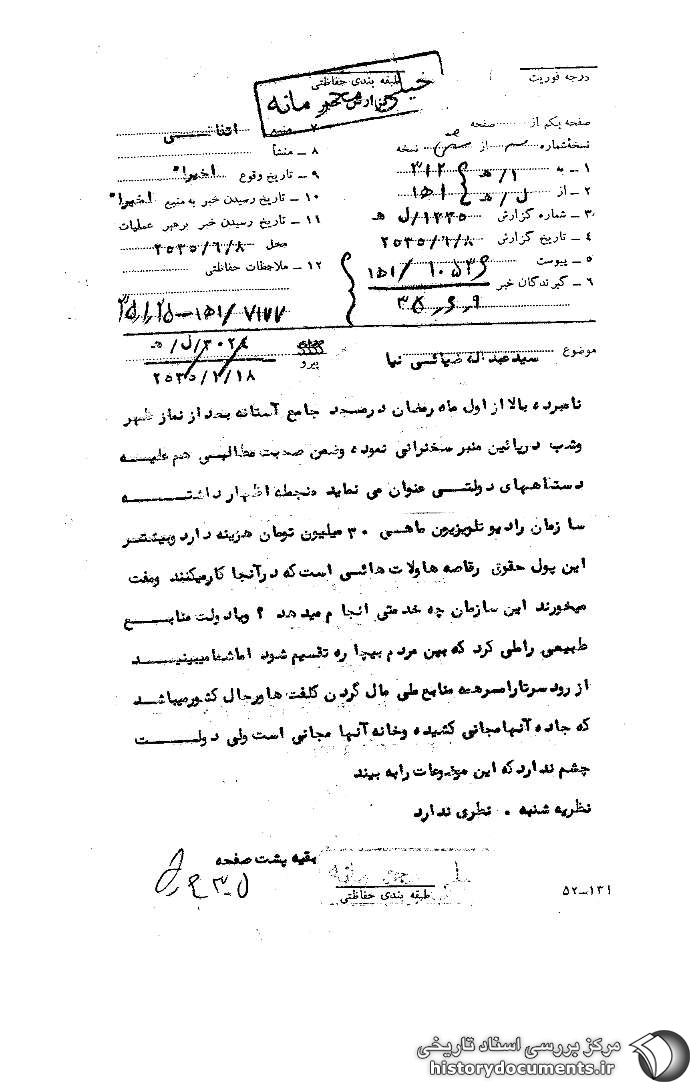 درجه فوریت
طبقه بندی حفاظتی
گزارش خبر
خیلی محرمانه
صفحه یکم از صفحه
نسخه شماره از نسخه
۱ – به ۳۱۲ / ﻫ ۱
۲ – از ۱۵۱ / ﻫ ل
۳ – شماره گزارش ۱۲۳۵/ل ﻫ
۴ – تاریخ گزارش ۲۵۳۵/۶/۸
۵ – پیوست
۶ – گیرندگان خبر
۷ – منبع اتفاقی
۸ – منشأ
۹ – تاریخ وقوع اخیرا"
۱۰ – تاریخ رسیدن خبر به منبع اخیرا"
۱۱ – تاریخ رسیدن خبر برهبر عملیات
محل ۲۵۳۵/۶/۸
۱۲ – ملاحظات حفاظتی
۳۵٫۶٫۹
موضوع سید عبداله ضیائی نیا
پیرو
نامبرده بالا از اول ماه رمضان در مسجد جامع آستانه بعد از نماز ظهر
وشب در پائین منبر سخنرانی نموده وضمن صحبت مطالبی هم علیه
دستگاههای دولتی عنوان می نماید منجمله اظهار داشته
سازمان رادیو تلویزیون ماهی ۳۰ میلیون تومان هزینه دارد وبیشتر
این پول حقوق رقاصه ها ولات هائی است که در آنجا کار میکنند ومفت
میخورند این سازمان چه خدمتی انجام میدهد ؟ ویا دولت منابع
طبیعی را ملی کرد که بین مردم بیچاره تقسیم شود اما شما میبینید
از رودسر تا رامسر همه منابع ملی مال گردن کلفت ها ورجال کشور میباشد
که جاده آنها مجانی کشیده وخانه آنها مجانی است ولی دولت
چشم ندارد که این موضوعات را به بیند
نظریه شنبه . نظری ندارد
بقیه پشت صفحه
طبقه بندی حفاظتی
۵۲–۱۳۱
مرکز بررسی اسناد تاریخی
historydocuments.ir